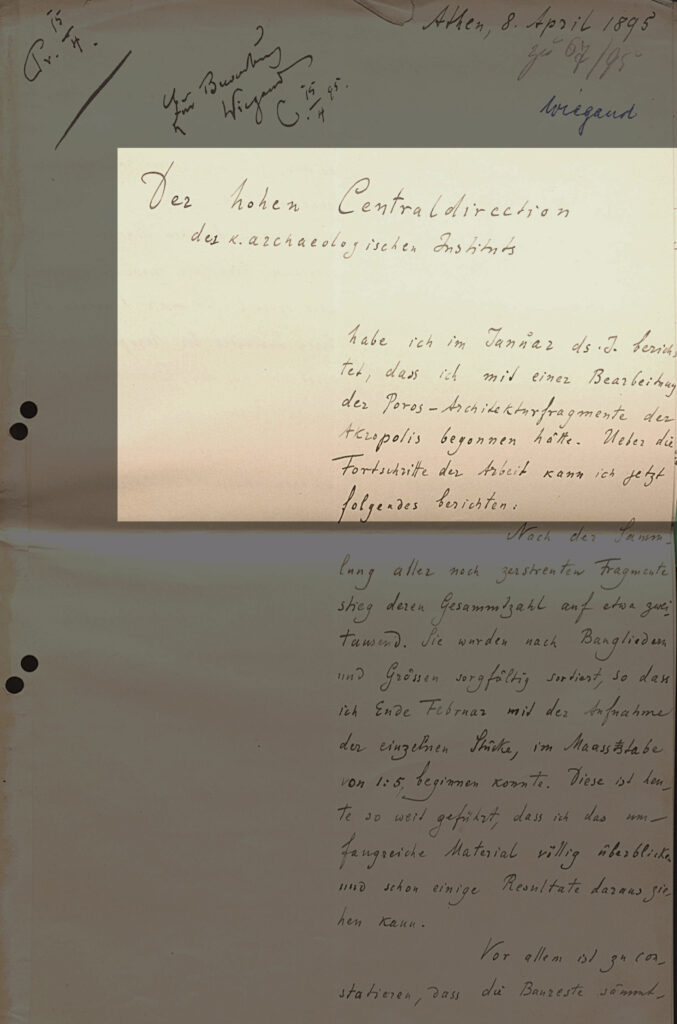 Athen, 8. April 1895
Pr. 15/4.
zu 67/95
Wiegand
Wiegand
C. 15/4 95.
Der hohen Centraldirection
des k. archaeologischen Instituts
habe ich im Januar ds. J. berich
tet, dass ich mit einer Bearbeitung
der Poros-Architekturfragmente der
Akropolis begonnen hätte. Ueber die
Fortschritte der Arbeit kann ich jetzt
folgendes berichten:
Nach der Samm-
lung aller noch zerstreuten Fragmente
stieg deren Gesammtzahl auf etwa zwei-
tausend. Sie wurden nach Baugliedern
und Grössen sorgfältig sortiert, so dass
ich Ende Februar mit der Aufnahme
der einzelnen Stücke, im Maassstabe
von 1:5, beginnen konnte. Diese ist heu-
te so weit geführt, dass ich das um-
fangreiche Material völlig überblicken
und schon einige Resultate daraus zie-
hen kann.
Vor allem ist zu con-
statieren, dass die Baureste sämmt-